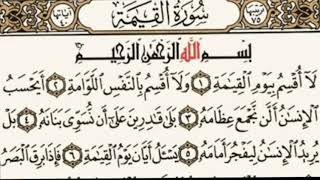 سُورَةُ الْقِيَامَةِ
بِسْمِ اللَّهِ الرَّحْمَٰنِ الرَّحِيمِ
لَا أُقْسِمُ بِيَوْمِ الْقِيَٰمَةِ ١ وَلَا أُقْسِمُ بِالنَّفْسِ اللَّوَّامَةِ ٢ أَيَحْسَبُ
الْإِنسَٰنُ أَلَّن نَّجْمَعَ عِظَامَهُ ٣ بَلَىٰ قَٰدِرِينَ عَلَىٰ أَن نُّسَوِّيَ بَنَانَهُ ٤ بَلْ
يُرِيدُ الْإِنسَٰنُ لِيَفْجُرَ أَمَامَهُ ٥ يَسْـَٔلُ أَيَّانَ يَوْمُ الْقِيَٰمَةِ ٦ فَإِذَا بَرِقَ الْبَصَرُ